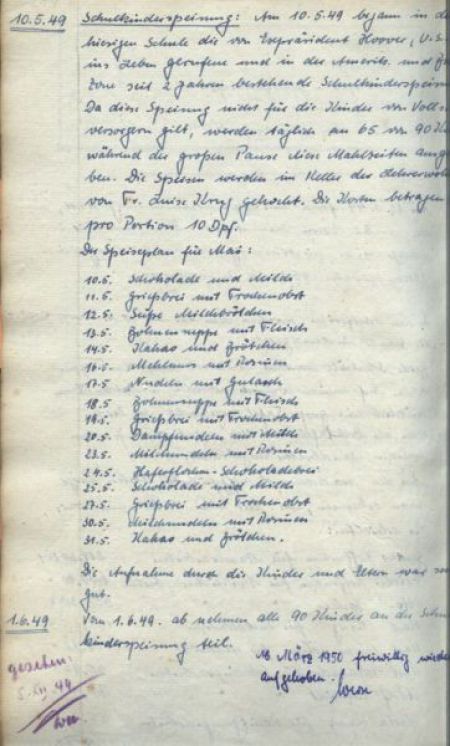 10.5.49 Schulkinderspeisung: Am 10.5.49 begann in de
hiesigen Schule die von Expräsident Hoover, U.S.
ins Leben gerufene und in der Amerik. und
Zone seit 2 Jahren bestehende Schulkinderspeisun
Da diese Speisung nicht für die Kinder von Voll
versorgern gilt, werden täglich an 65 von 90 K
während der großen Pause diese Mahlzeiten ausge
ben. Die Speisen werden im Keller der Lehrerwoh
von Fr. Luise Krug gekocht. Die Kosten betragen
pro Portion 10 Dpf.
Der Speiseplan für Mai:
10.5. Schokolade und Milch
11.5. Grießbrei mit Trockenobst
12.5. Süße Milchbrötchen
13.5. Bohnensuppe mit Fleisch
14.5. Kakao und Brötchen
16.5. mit Rosinen
17.5. Nudeln mit Gulasch
18.5. Bohnensuppe mit Fleisch
19.5. Grießbrei mit Trockenobst
20.5. Dampfnudeln mit Milch
23.5. Milchnudeln mit Rosinen
24.5. Haferflocken-Schokoladebrei
25.5. Schokolade und Milch
27.5. Grießbrei mit Trockenobst
30.5. Milchnudeln mit Rosinen
31.5. Kakao und Brötchen.
Die Aufnahme durch die Kinder und Eltern war se
gut.
1.6.49 Vom 1.6.49. ab nehmen alle 90 Kinder an der Schul
kinderspeisung teil.
Ab März 1950 freiwillig wieder
aufgehoben.
gesehen:
5. XII. 49